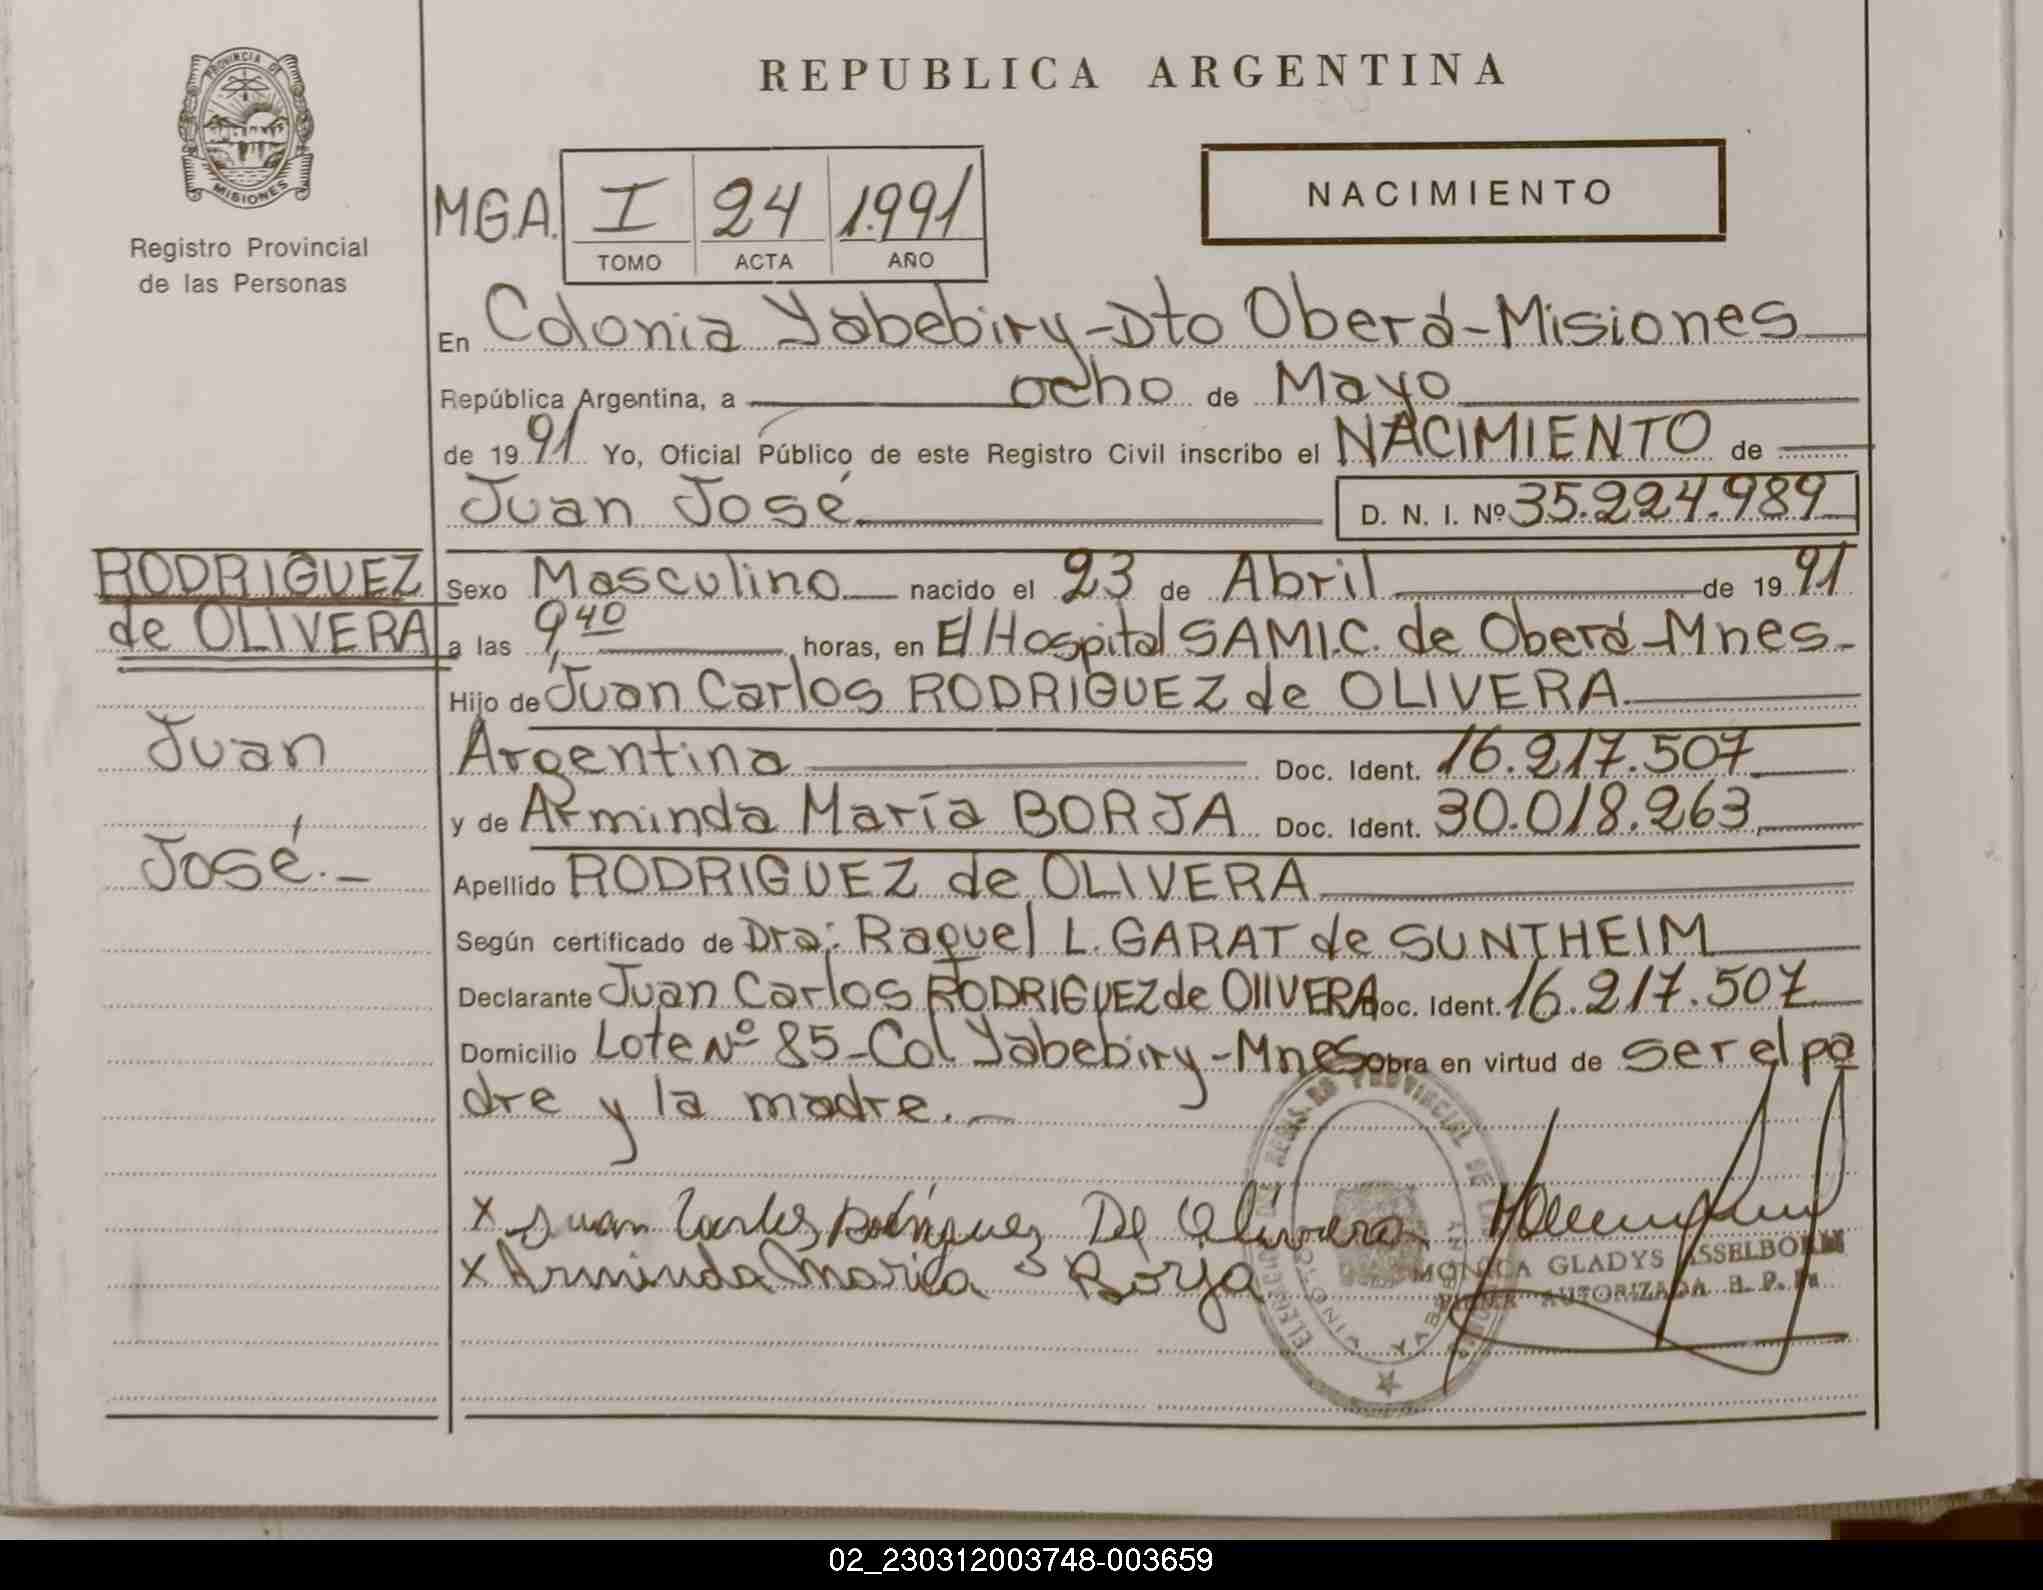 PROVINCIA DE
MISIONES
Registro Provincial
de las Personas
REPUBLICA ARGENTINA
NACIMIENTO
M.G.A. I 24 1.991
TOMO ACTA AÑO
En Colonia Yabebiry-Dto Oberá-Misiones
República Argentina, a ocho de Mayo
de 19 91 Yo, Oficial Público de este Registro Civil inscribo el NACIMIENTO de
Juan José D. N. I. Nº 35.224.989
RODRIGUEZ
de OLIVERA
Juan
José.-
Sexo Masculino nacido el 23 de Abril de 19 91
a las 9,40 horas, en El Hospital SAMI.C. de Oberá-Mnes-
Hijo de Juan Carlos RODRIGUEZ de OLIVERA
Argentina Doc. Ident. 16.217.507
y de Arminda María BORJA Doc. Ident. 30.018.263
Apellido RODRIGUEZ de OLIVERA
Según certificado de Dra: Raquel L. GARAT de SUNTHEIM
Declarante Juan Carlos RODRIGUEZ de OlIVERA Doc. Ident. 16.217.507
Domicilio Lote Nº 85-Col. Yabebiry-Mnes obra en virtud de ser el pa
dre y la madre.-
x Juan Carlos Rodriguez De Olivera
x Arminda Maria Borja
MONICA GLADYS ASSELBORN
FIRMA AUTORIZADA R. P. P.
02_230312003748-003659